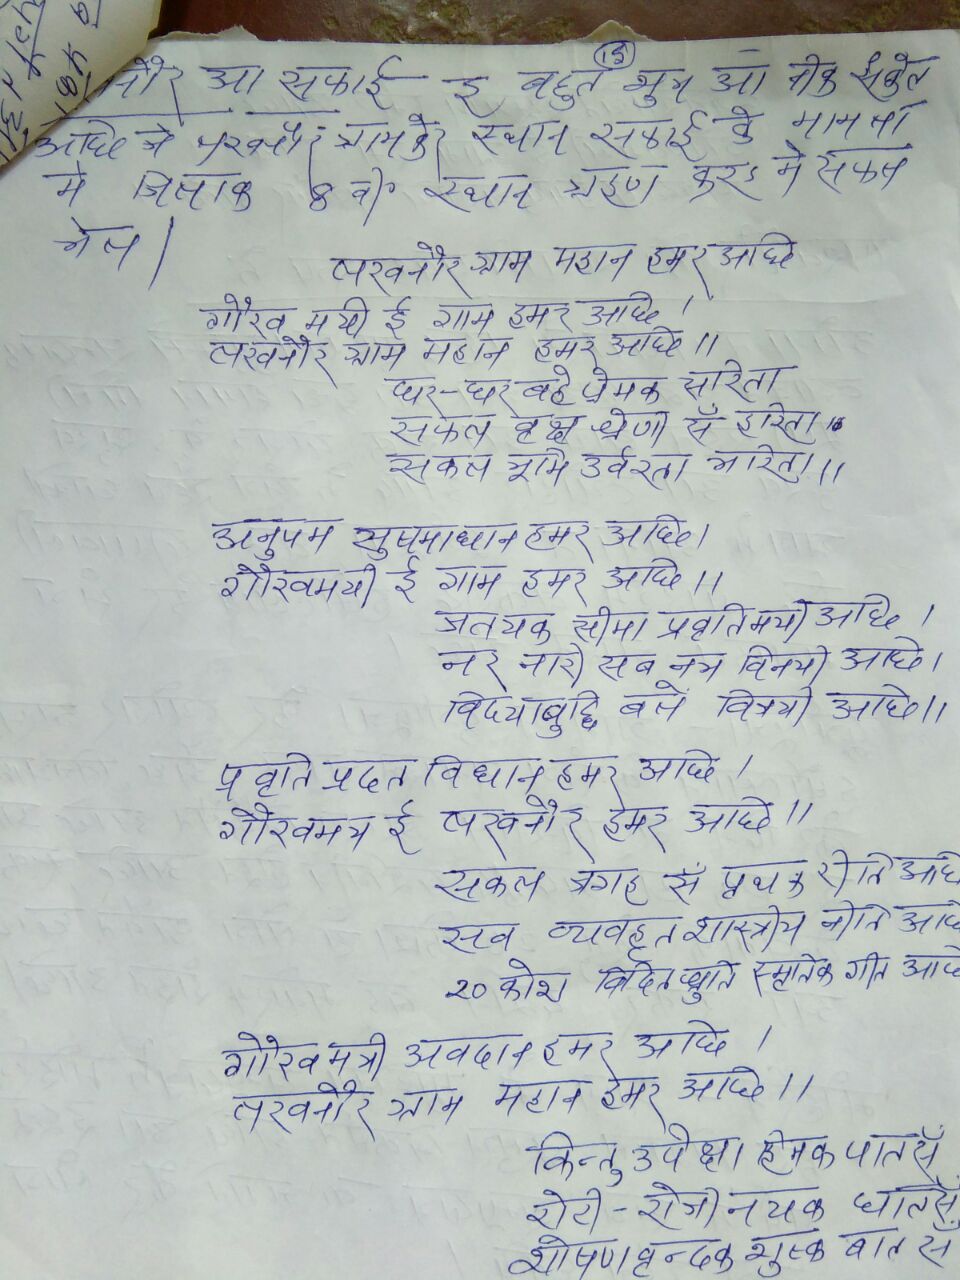 15
लखनौर आ सफाई - इ बहुत शुभ आ नीक संकेत
अछि जे लखनौर ग्रामके स्थान सफाई के मामला
मे जिलाक 8 वी स्थान ग्रहण करइ मे सफल
भेल।
लखनौर ग्राम महान हमर अछि
गौरव मयी ई गाम हमर अछि।
लखनौर ग्राम महान हमर अछि॥
घर-घर बहे प्रेमक सरिता
सकल वृक्ष श्रेणी सँ हरिता॥
सकल भूमि उर्वरता भरिता॥
अनुपम सुषमाधान हमर अछि।
गौरवमयी ई गाम हमर अछि॥
जतयक सीमा प्रवृतिमयी अछि।
नर नारी सब नम्र विनयी अछि।
विद्याबुद्धि बलें विजयी अछि॥
प्रवृति प्रदत विधान हमर अछि।
गौरवमय ई लखनौर हमर अछि॥
सकल जगह सँ पृथक रीति अछि
सब व्यवहृत शास्त्रीय नीति अछि
२० कोश विदित श्रुति स्मृतिक गीत अछि
गौरव मयी अवदान हमर अछि।
लखनौर ग्राम महान हमर अछि॥
किन्तु उपेक्षा हिमक पातसँ
रोटी-रोजी नयक घातसँ
शोषणवृन्दक शुष्क बात सँ